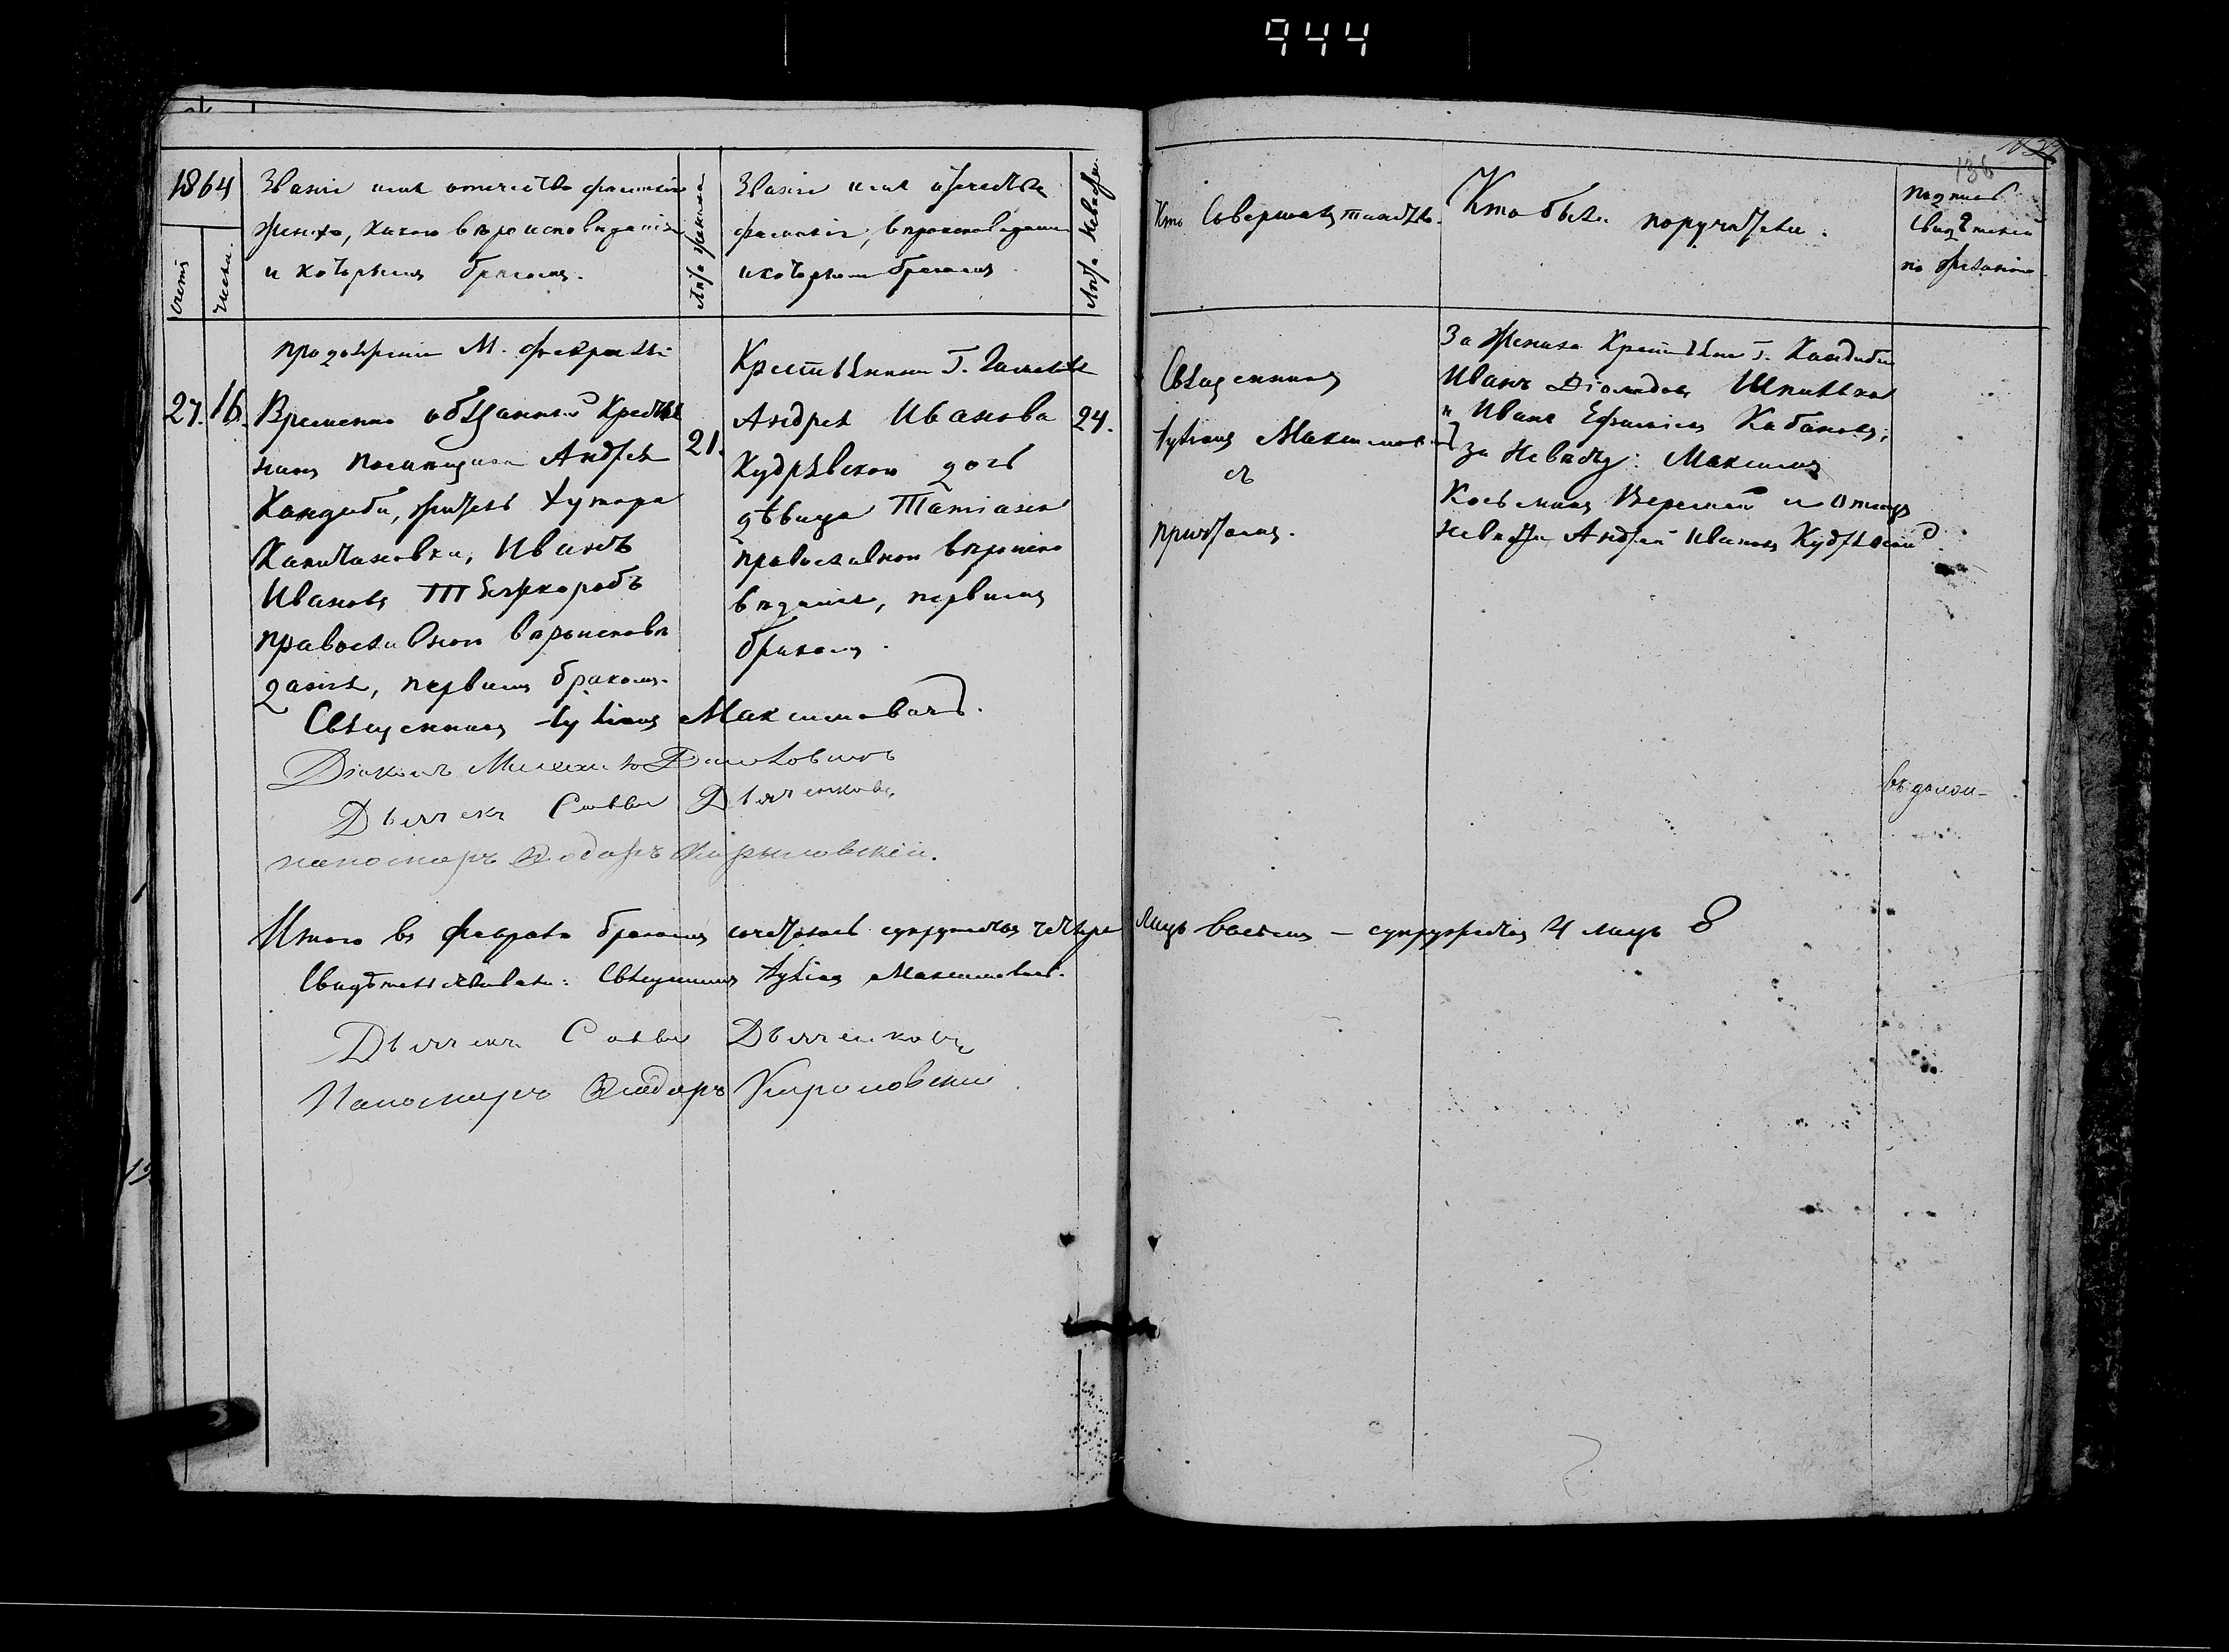 944
136
1864
Званіе имя отечество фамилія
жениха, какого вѣроисповѣданія
и которымъ бракомъ.
Лѣта жениха
Званіе имя отечество
фамилія, вѣроисповеданія
и которымъ бракомъ
Лѣта Невѣсты
Кто Совершалъ таинство.
Кто были поручители.
подпись
свидѣтелей
по желанію
счетъ
число
продолженіе М. февраля
27. 16.
Временно обязанный крестья
нинъ помещика Андрея
Кандибы, житель хутора
Иванъ
Ивановъ
православнаго вѣроисповѣ
данія, первымъ бракомъ.
21.
Крестьянина Г.
Андрея Иванова
Кудрявскаго дочь
дѣвица Татіана
православнаго вѣроиспо
вѣданія, первымъ
бракомъ.
24.
Священникъ
Максимович
съ
причтомъ.
За жениха Крестьяне Г. Кандибы
Иванъ Діомидовъ Шпилька
и Иванъ Ефимовъ Кабановъ;
за Невѣсту: Максимъ
Косьминъ Веремей и Отецъ
невѣсты Андрей Ивановъ Кудрявский
Священникъ Максимовичъ.
Діаконъ
Дьячекъ Савва Дьяченковъ
пономарь Федоръ
Итого въ Февралѣ бракомъ сочеталось супружествъ четыре лицъ восемь – супружествъ 4 лицъ 8
Свидѣтельствовали: Священникъ Максимовичъ.
Дьячекъ Савва Дьяченковъ
Пономарь Феодоръ